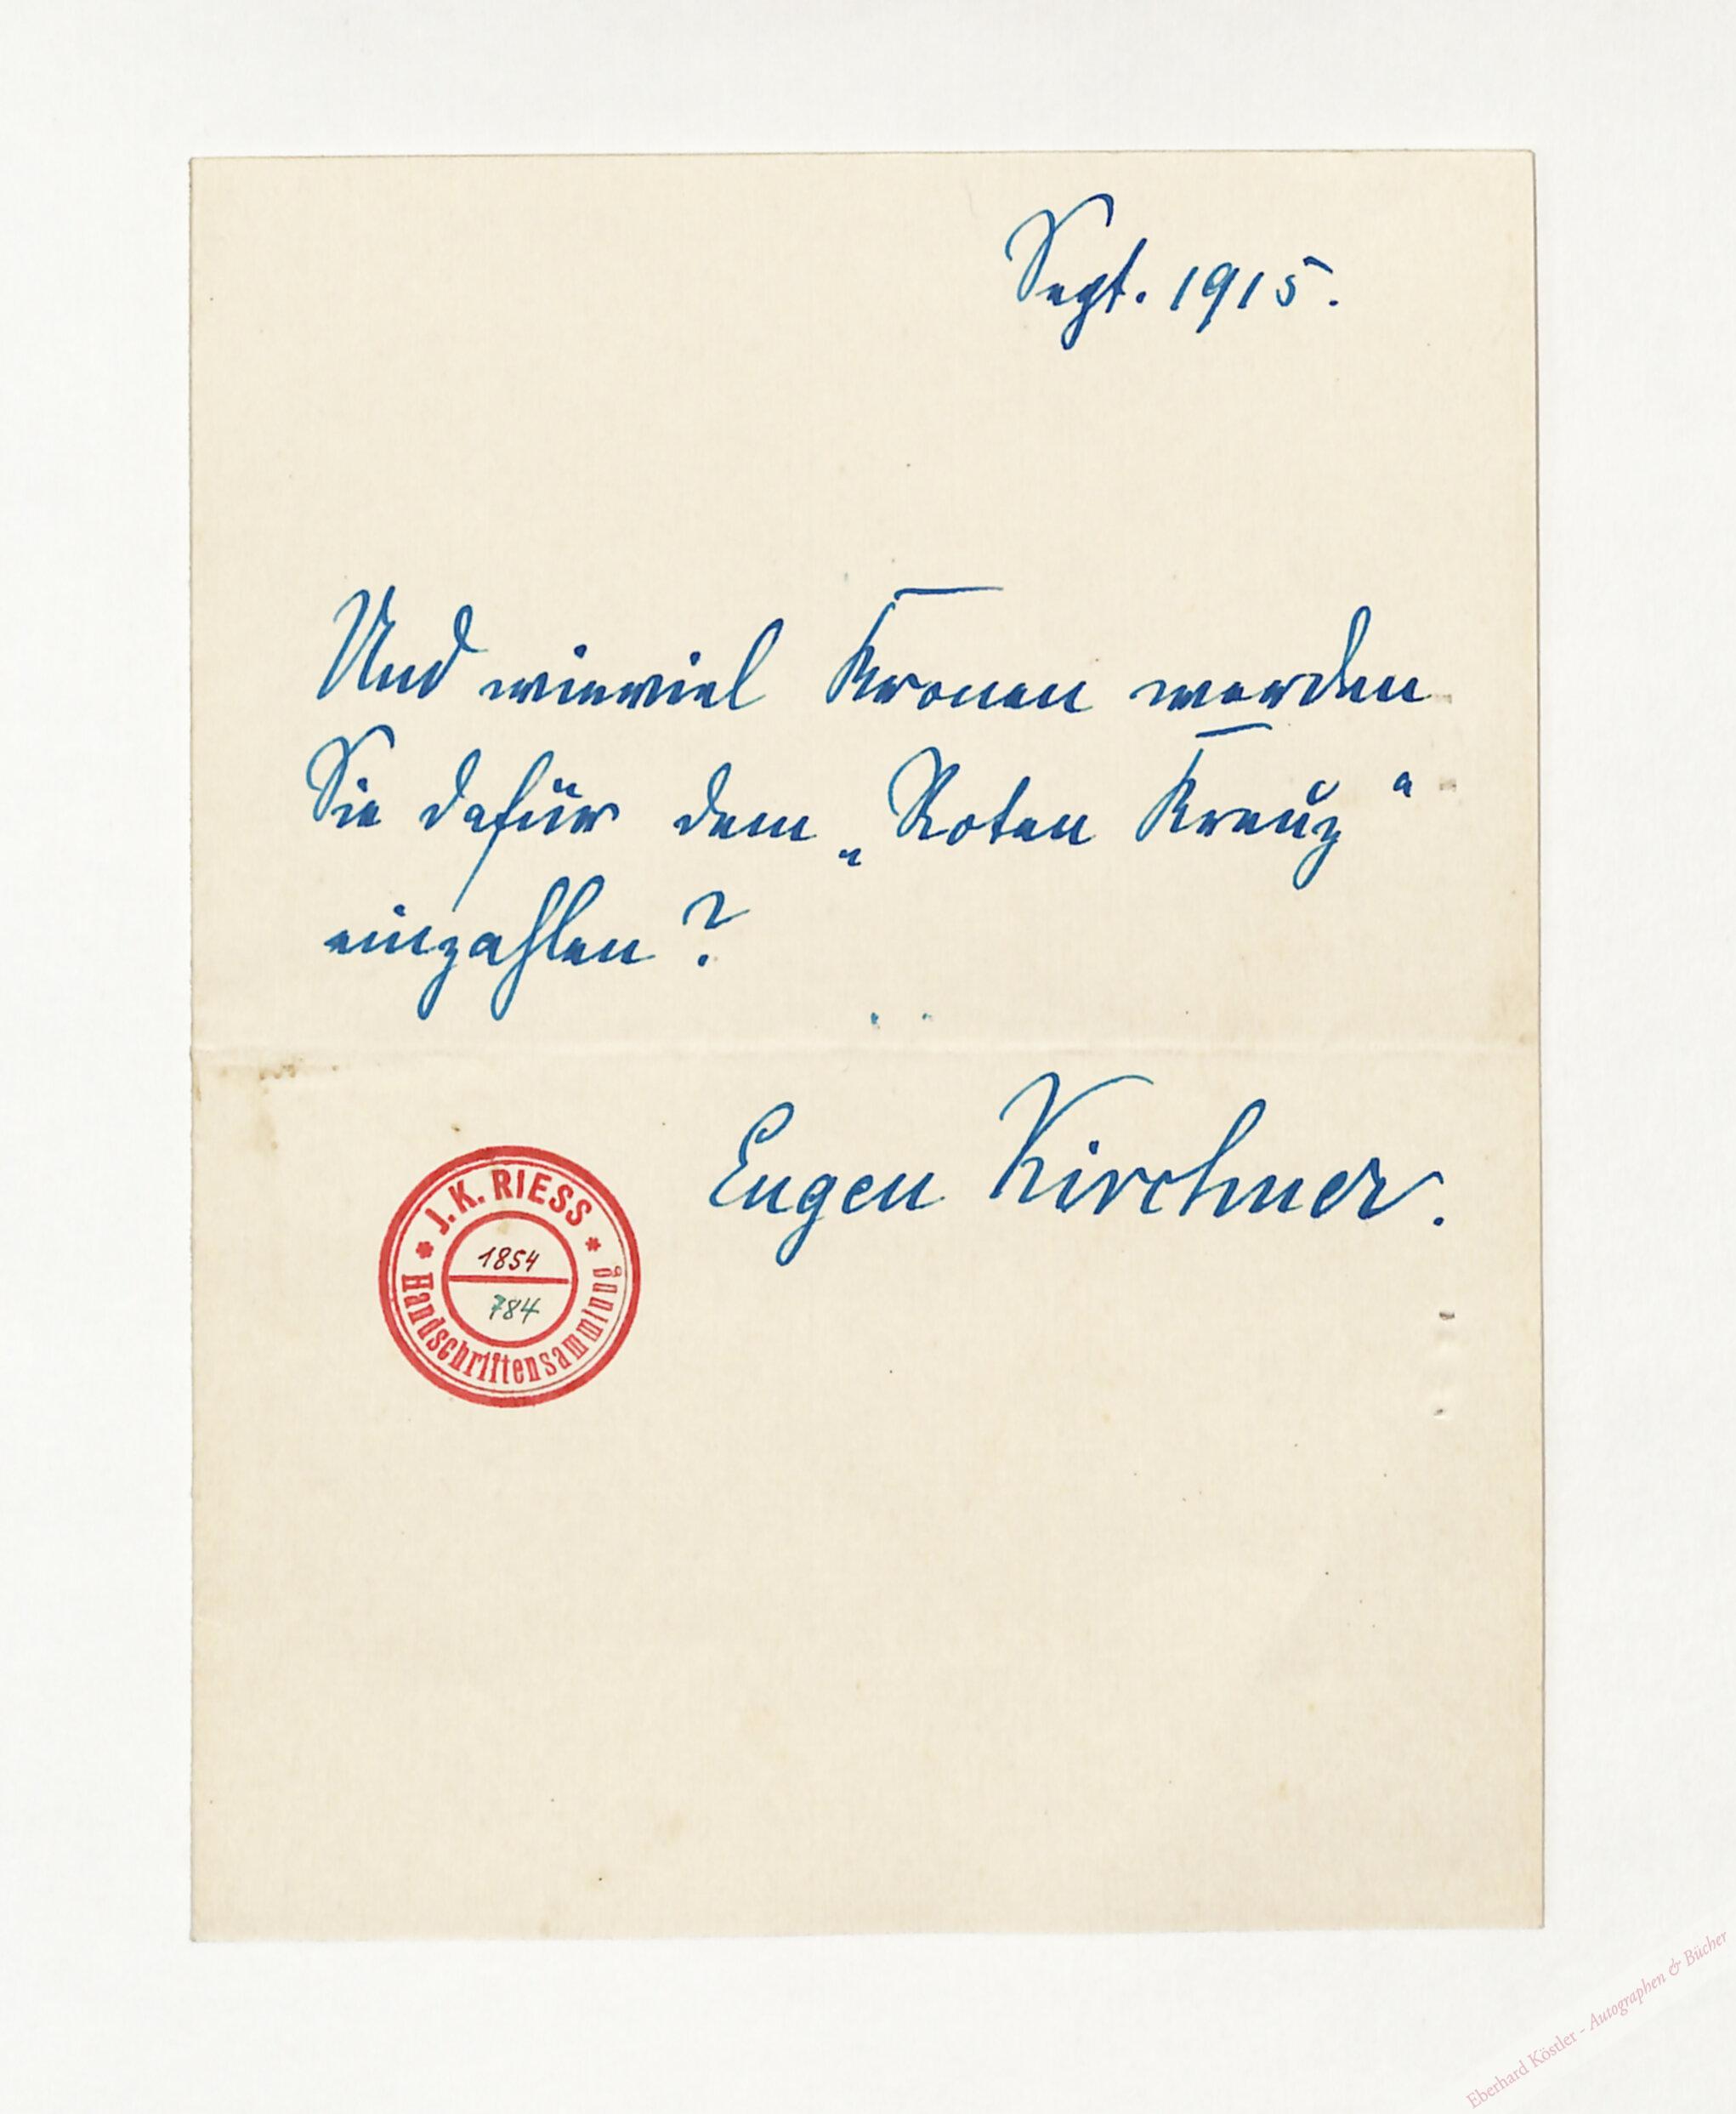 Sept. 1915.
Und wieviel Kronen werden
Sie dafür dem „Roten Kreuz“
einzahlen?
Eugen Kirchner.
* J. K. RIESS *
1854
784
Handschriftensammlung
Eberhard Köstler - Autographen & Bücher